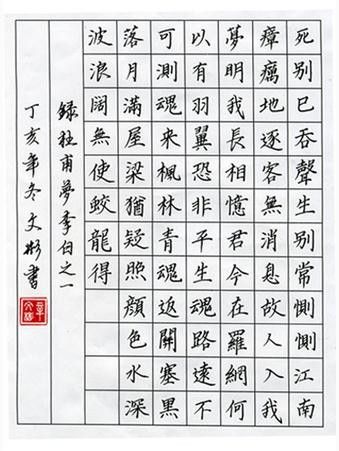 死别已吞聲生别常惻惻江南
瘴癘地逐客無消息故人入我
夢明我長相憶君今在羅網何
以有羽翼恐非平生魂路遠不
可測魂来楓林青魂返關塞黑
落月滿屋梁猶疑照顔色水深
波浪闊無使蛟龍得
録杜甫夢李白之一
丁亥年冬文彬書